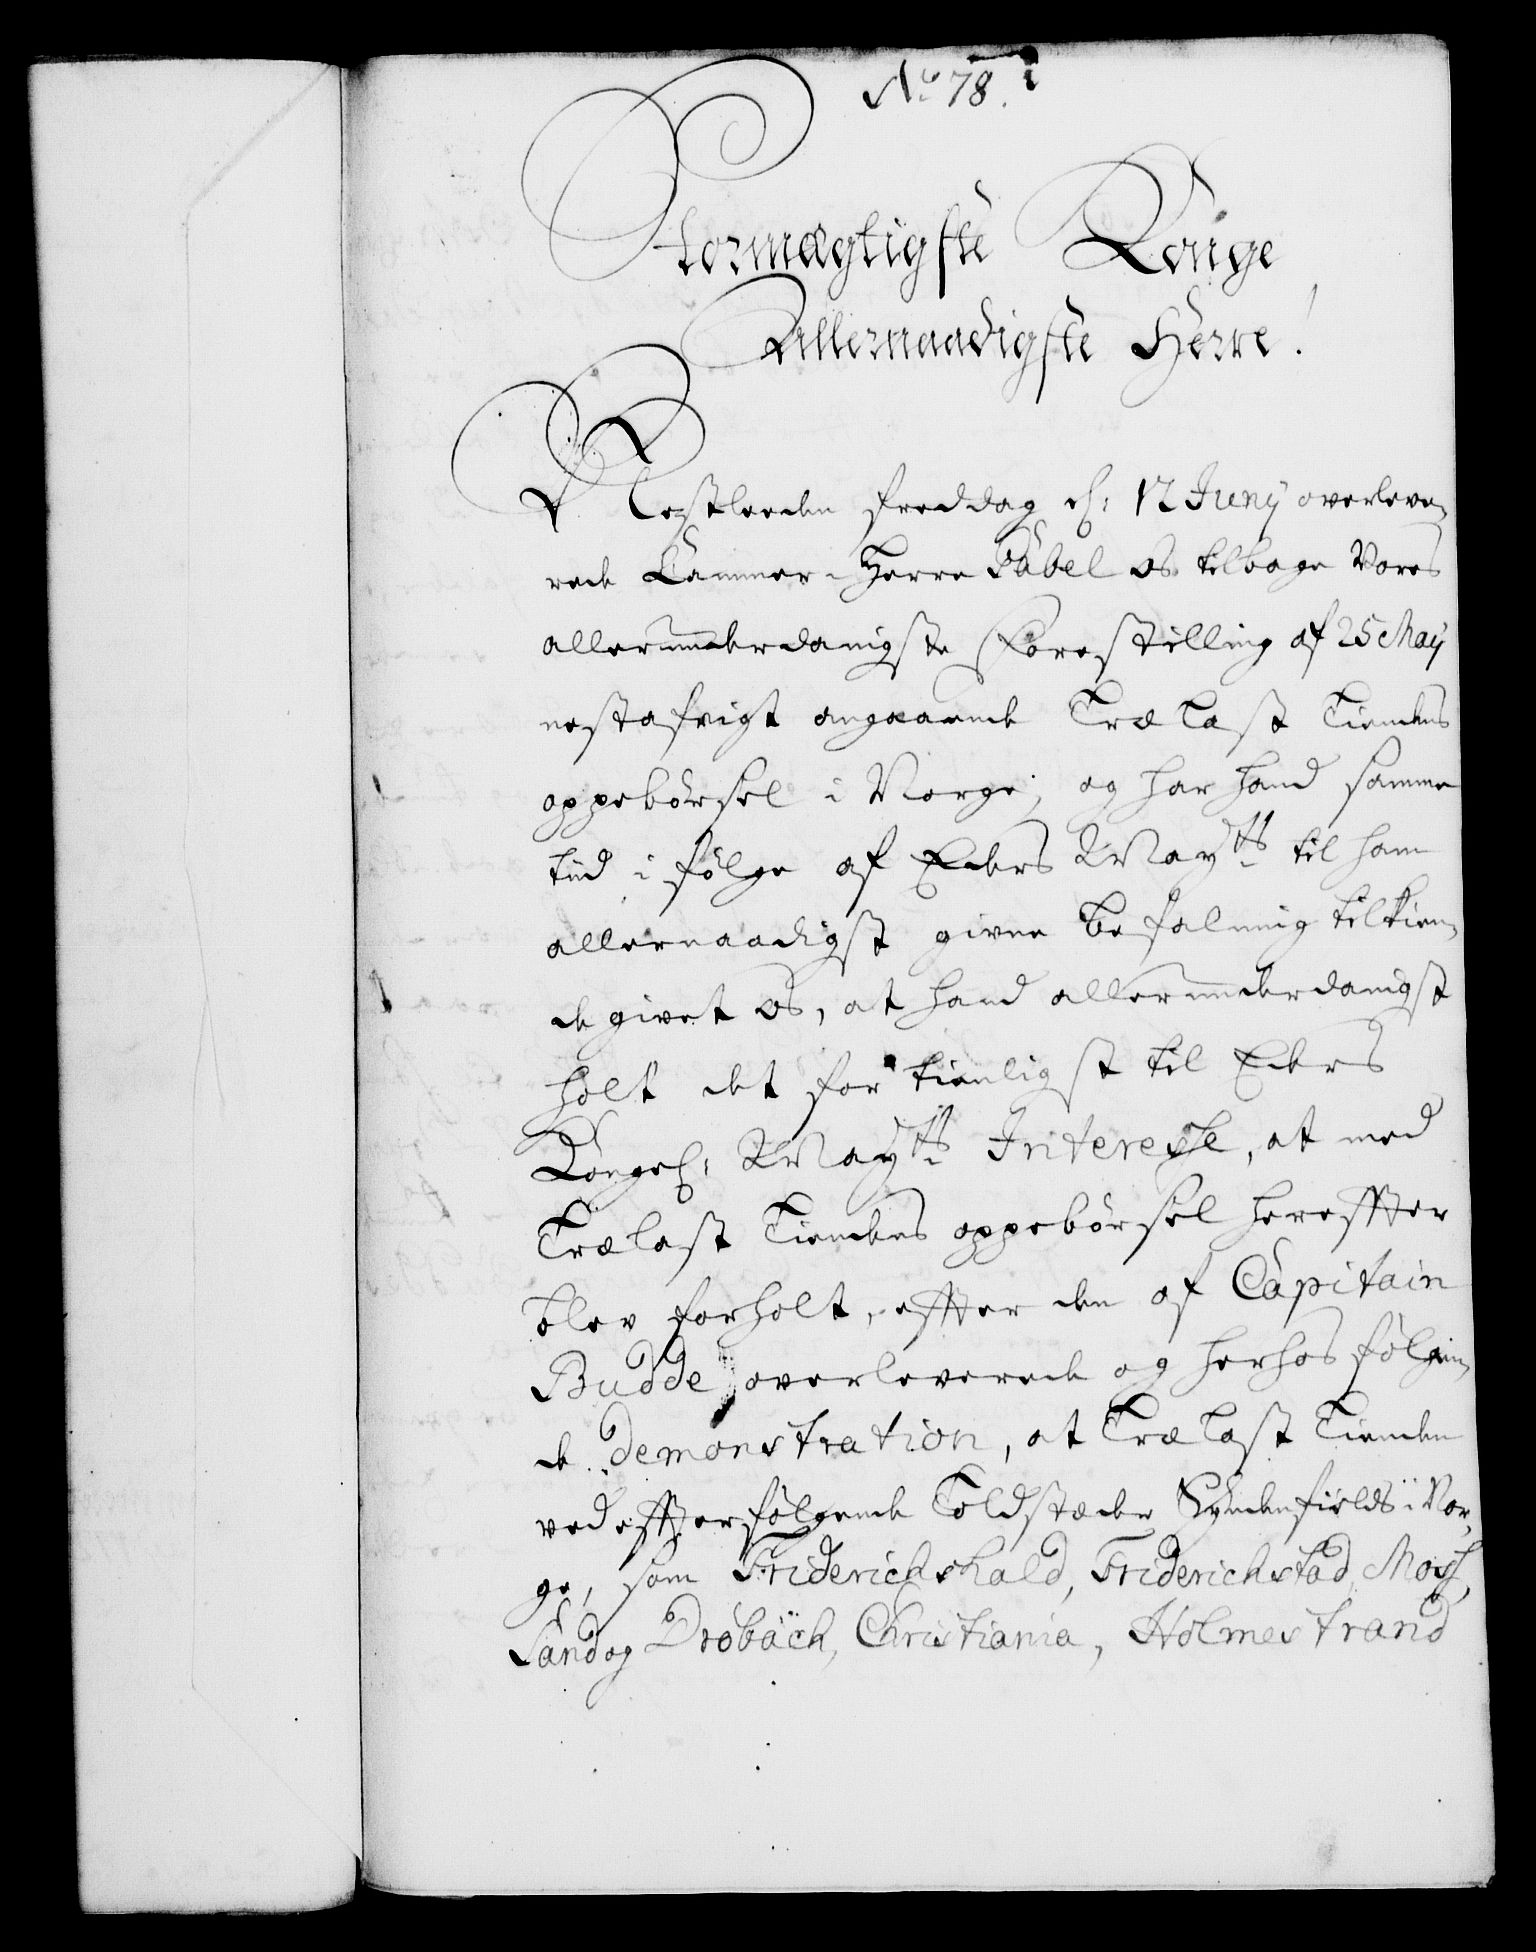 No. 78.
Stormægtigste Konge
Allernaadigste Herre!
Sidstleeden Freddag d: 12 Junij overleve-
rede Cammer-Herre Gabel os tilbage Vores
allerunderdanigste Forestilling af 25 Maij
nestafvigt angaaende Træ Last Tiendens
oppebørsel i Norge, og har hand samme
tiid i følge af Eders Mayts til ham
allernaadigst givne befalning tilkien-
degivet os, at hand allerunderdanigst
holt det for tienligst til Eders
Kongel: Mayts Interesse, at med
Trælast Tiendens oppebørsel herefter
blev forholt, efter den af Capitain
Budde overleverede og herhos følgen-
de Demonstration, at Træ Last Tienden
ved efterfølgende Toldstæder Syndenfields i Nor-
ge, som Friderichshald, Friderichstad, Moss,
Sand og Drøback, Christiania, Holmestrand